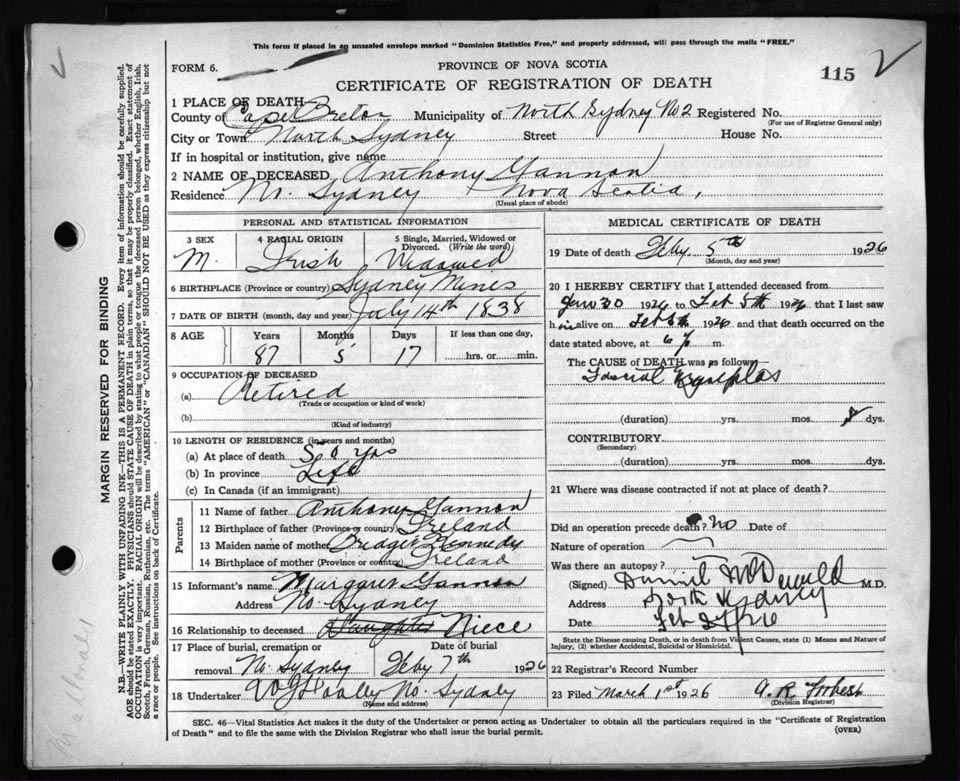 This form if placed in an unsealed envelope marked "Dominion Statistics Free," and properly addressed, will pass through the mails "FREE."
FORM 6.
PROVINCE OF NOVA SCOTIA
CERTIFICATE OF REGISTRATION OF DEATH
115
MARGIN RESERVED FOR BINDING
N.B.—WRITE PLAINLY WITH UNFADING INK—THIS IS A PERMANENT RECORD. Every item of information should be carefully supplied.
AGE should be stated EXACTLY. PHYSICIANS should STATE CAUSE OF DEATH in plain terms, so that it may be properly classified. Exact statement of
OCCUPATION is very important. RACIAL ORIGIN will be described by stating to what people or tongue the deceased person belonged, whether English, Irish,
Scotch, French, German, Russian, Ruthenian, etc. The terms "AMERICAN" or "CANADIAN" SHOULD NOT BE USED as they express citizenship but not
a race or people. See instructions on back of Certificate.
1 PLACE OF DEATH
County of Cape Breton Municipality of North Sydney No 2 Registered No.
(For use of Registrar General only)
City or Town North Sydney Street House No.
If in hospital or institution, give name
2 NAME OF DECEASED Anthony Gannon
Residence N. Sydney Nova Scotia,
(Usual place of abode)
PERSONAL AND STATISTICAL INFORMATION
3 SEX M.
4 RACIAL ORIGIN Irish
5 Single, Married, Widowed or Divorced. (Write the word) Widowed
6 BIRTHPLACE (Province or country) Sydney Mines
7 DATE OF BIRTH (month, day and year) July 14th 1838
8 AGE Years Months Days If less than one day,
87 5 17 hrs. or min.
9 OCCUPATION OF DECEASED
(a) Retired
(Trade or occupation or kind of work)
(b)
(Kind of industry)
10 LENGTH OF RESIDENCE (in years and months)
(a) At place of death yrs
(b) In province Life
(c) In Canada (if an immigrant)
Parents
11 Name of father Anthony Gannon
12 Birthplace of father (Province or country) Ireland
13 Maiden name of mother Bridget Kennedy
14 Birthplace of mother (Province or country) Ireland
15 Informant's name Margaret Gannon
Address No. Sydney
16 Relationship to deceased Daughter Niece
17 Place of burial, cremation or removal No. Sydney
Date of burial Feby 7th 1926
18 Undertaker No. Sydney
(Name and address)
MEDICAL CERTIFICATE OF DEATH
19 Date of death Feby 5th 1926
(Month, day and year)
20 I HEREBY CERTIFY that I attended deceased from
Jan 30 1926 to Feb 5th 1926 that I last saw
h im alive on Feb 5th 1926 and that death occurred on
date stated above, at 6 p m.
The CAUSE of DEATH was as follows:
(duration) yrs. mos. dys.
CONTRIBUTORY
(Secondary)
(duration) yrs. mos. dys.
21 Where was disease contracted if not at place of death?
Did an operation precede death? no Date of
Nature of operation
Was there an autopsy?
(Signed) McDonald M.D.
Address North Sydney
Date Feb 27/26
State the Disease causing Death, or in death from Violent Causes, state (1) Means and Nature of
Injury, (2) whether Accidental, Suicidal or Homicidal.
22 Registrar's Record Number
23 Filed March 1st 1926 A. R. Forbes
(Division Registrar)
SEC. 46—Vital Statistics Act makes it the duty of the Undertaker or person acting as Undertaker to obtain all the particulars required in the "Certificate of Registration
of Death" and to file the same with the Division Registrar who shall issue the burial permit.
(OVER)